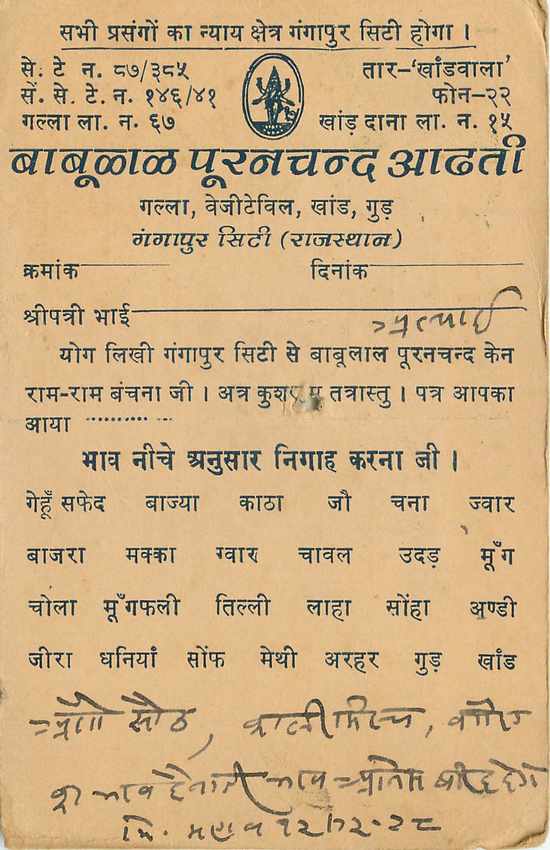 सभी प्रसंगों का न्याय क्षेत्र गंगापुर सिटी होगा ।
से. टे न. ८७/३८५
सें. से. टे. न. १४६/४१
गल्ला ला. न. ६७
तार-‘खांडवाला’
फोन-२२
खांड़ दाना ला. न. १५
बाबूलाल पूरनचन्द आढती
गल्ला, वेजीटेविल, खांड, गुड़
गंगापुर सिटी (राजस्थान)
क्रमांक दिनांक
श्रीपत्री भाई
योग लिखी गंगापुर सिटी से बाबूलाल पूरनचन्द केन
राम-राम बंचना जी । अत्र कुशल तत्रास्तु । पत्र आपका
आया ...........
भाव नीचे अनुसार निगाह करना जी ।
गेहूँ सफेद बाज्या काठा जौ चना ज्वार
बाजरा मक्का ग्वार चावल उदड़ मूँग
चोला मूँगफली तिल्ली लाहा सोंहा अण्डी
जीरा धनियां सोंफ मेथी अरहर गुड़ खांड
सौठ, कालीमिरच,
भाव भाव